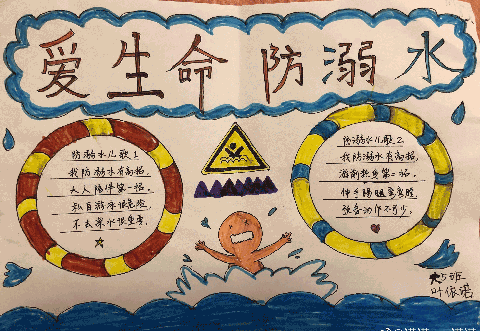 爱生命防溺水
防溺水儿歌1
我防溺水有高招,
大人陪伴第一招,
私自游泳很危险,
不去深水很重要,
防溺水儿歌2
我防溺水有高招,
游前热身第二招,
伸手踢腿弯弯腰,
预备动作不可少,
大5班